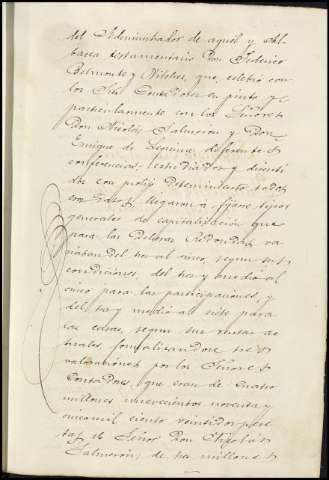 del Administrador de aquel y Al-
bacea testamentario Don Federico
Belmonte y Vilches, que, celebró con
los Sres Contadores en junto y
particularmente con los Señores
Don Nicolás Salmerón y Don
Enrique de diferentes
conferencias, estudiados y discuti
dos con prolijo detenimiento todos
llegaron a fijarse tipos
generales de capitalización que
para las
riaban del tres al cinco, segun sus
condiciones, del tres y medio al
cinco para las participaciones, y
del tres y medio al siete para
las casas, segun sus rentas ac
tuales, formalizandose tres
valoraciones por los Señores
Contadores, que eran de cuatro
millones nuevecientos noventa y
cinco mil ciento veintidos pese
tas, el Señor Don Nicolás
Salmerón; de tres millones